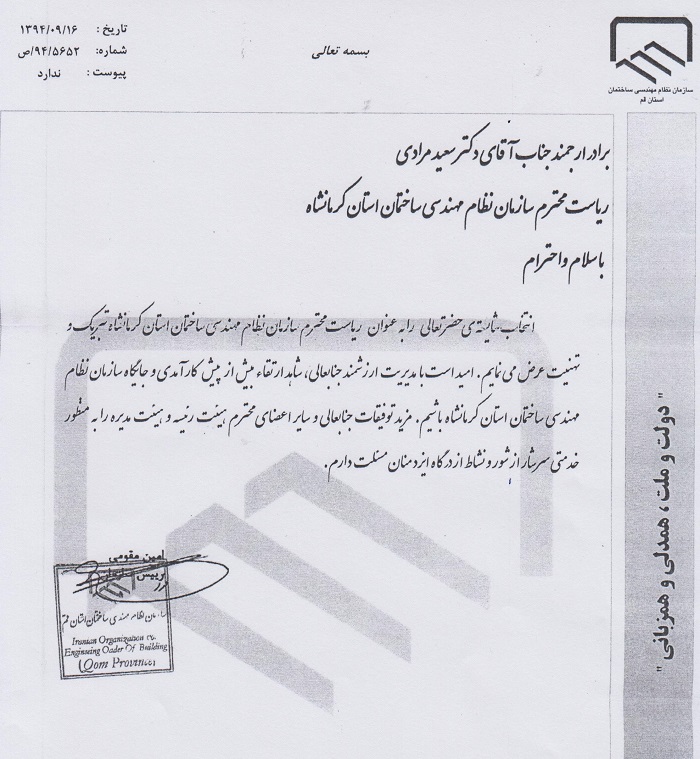 تاریخ : ۱۳۹۴/۰۹/۱۶
شماره: ۹۴/۵۶۵۲/ص
پیوست : ندارد
بسمه تعالی
سازمان نظام مهندسی ساختمان
استان قم
برادر ارجمند جناب آقای دکتر سعید مرادی
ریاست محترم سازمان نظام مهندسی ساختمان استان کرمانشاه
با سلام و احترام
انتخاب شایسته ی حضرتعالی را به عنوان ریاست محترم سازمان نظام مهندسی ساختمان استان کرمانشاه تبریک و
تهنیت عرض می نمایم. امید است با مدیریت ارزشمند جنابعالی، شاهد ارتقاء بیش از پیش کارآمدی و جایگاه سازمان نظام
مهندسی ساختمان استان کرمانشاه باشیم. مزید توفیقات جنابعالی و سایر اعضای محترم هیئت رئیسه و هیئت مدیره را به منظور
خدمتی سرشار از شور و نشاط از درگاه ایزد منان مسئلت دارم.
امین مقومی
رییس سازمان
سازمان نظام مهندسی ساختمان استان قم
Iranian Organization co.
Engineeing Oader Of Building
(Qom Province)
" دولت و ملت ، همدلی و همزبانی "